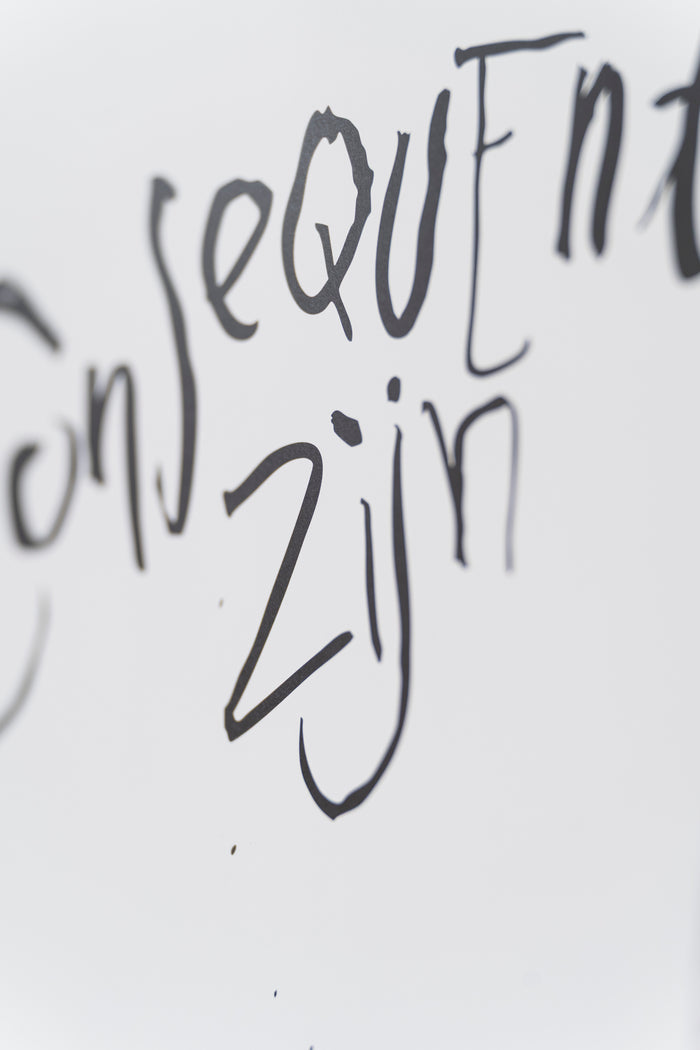 ConseQUEnt
zijn